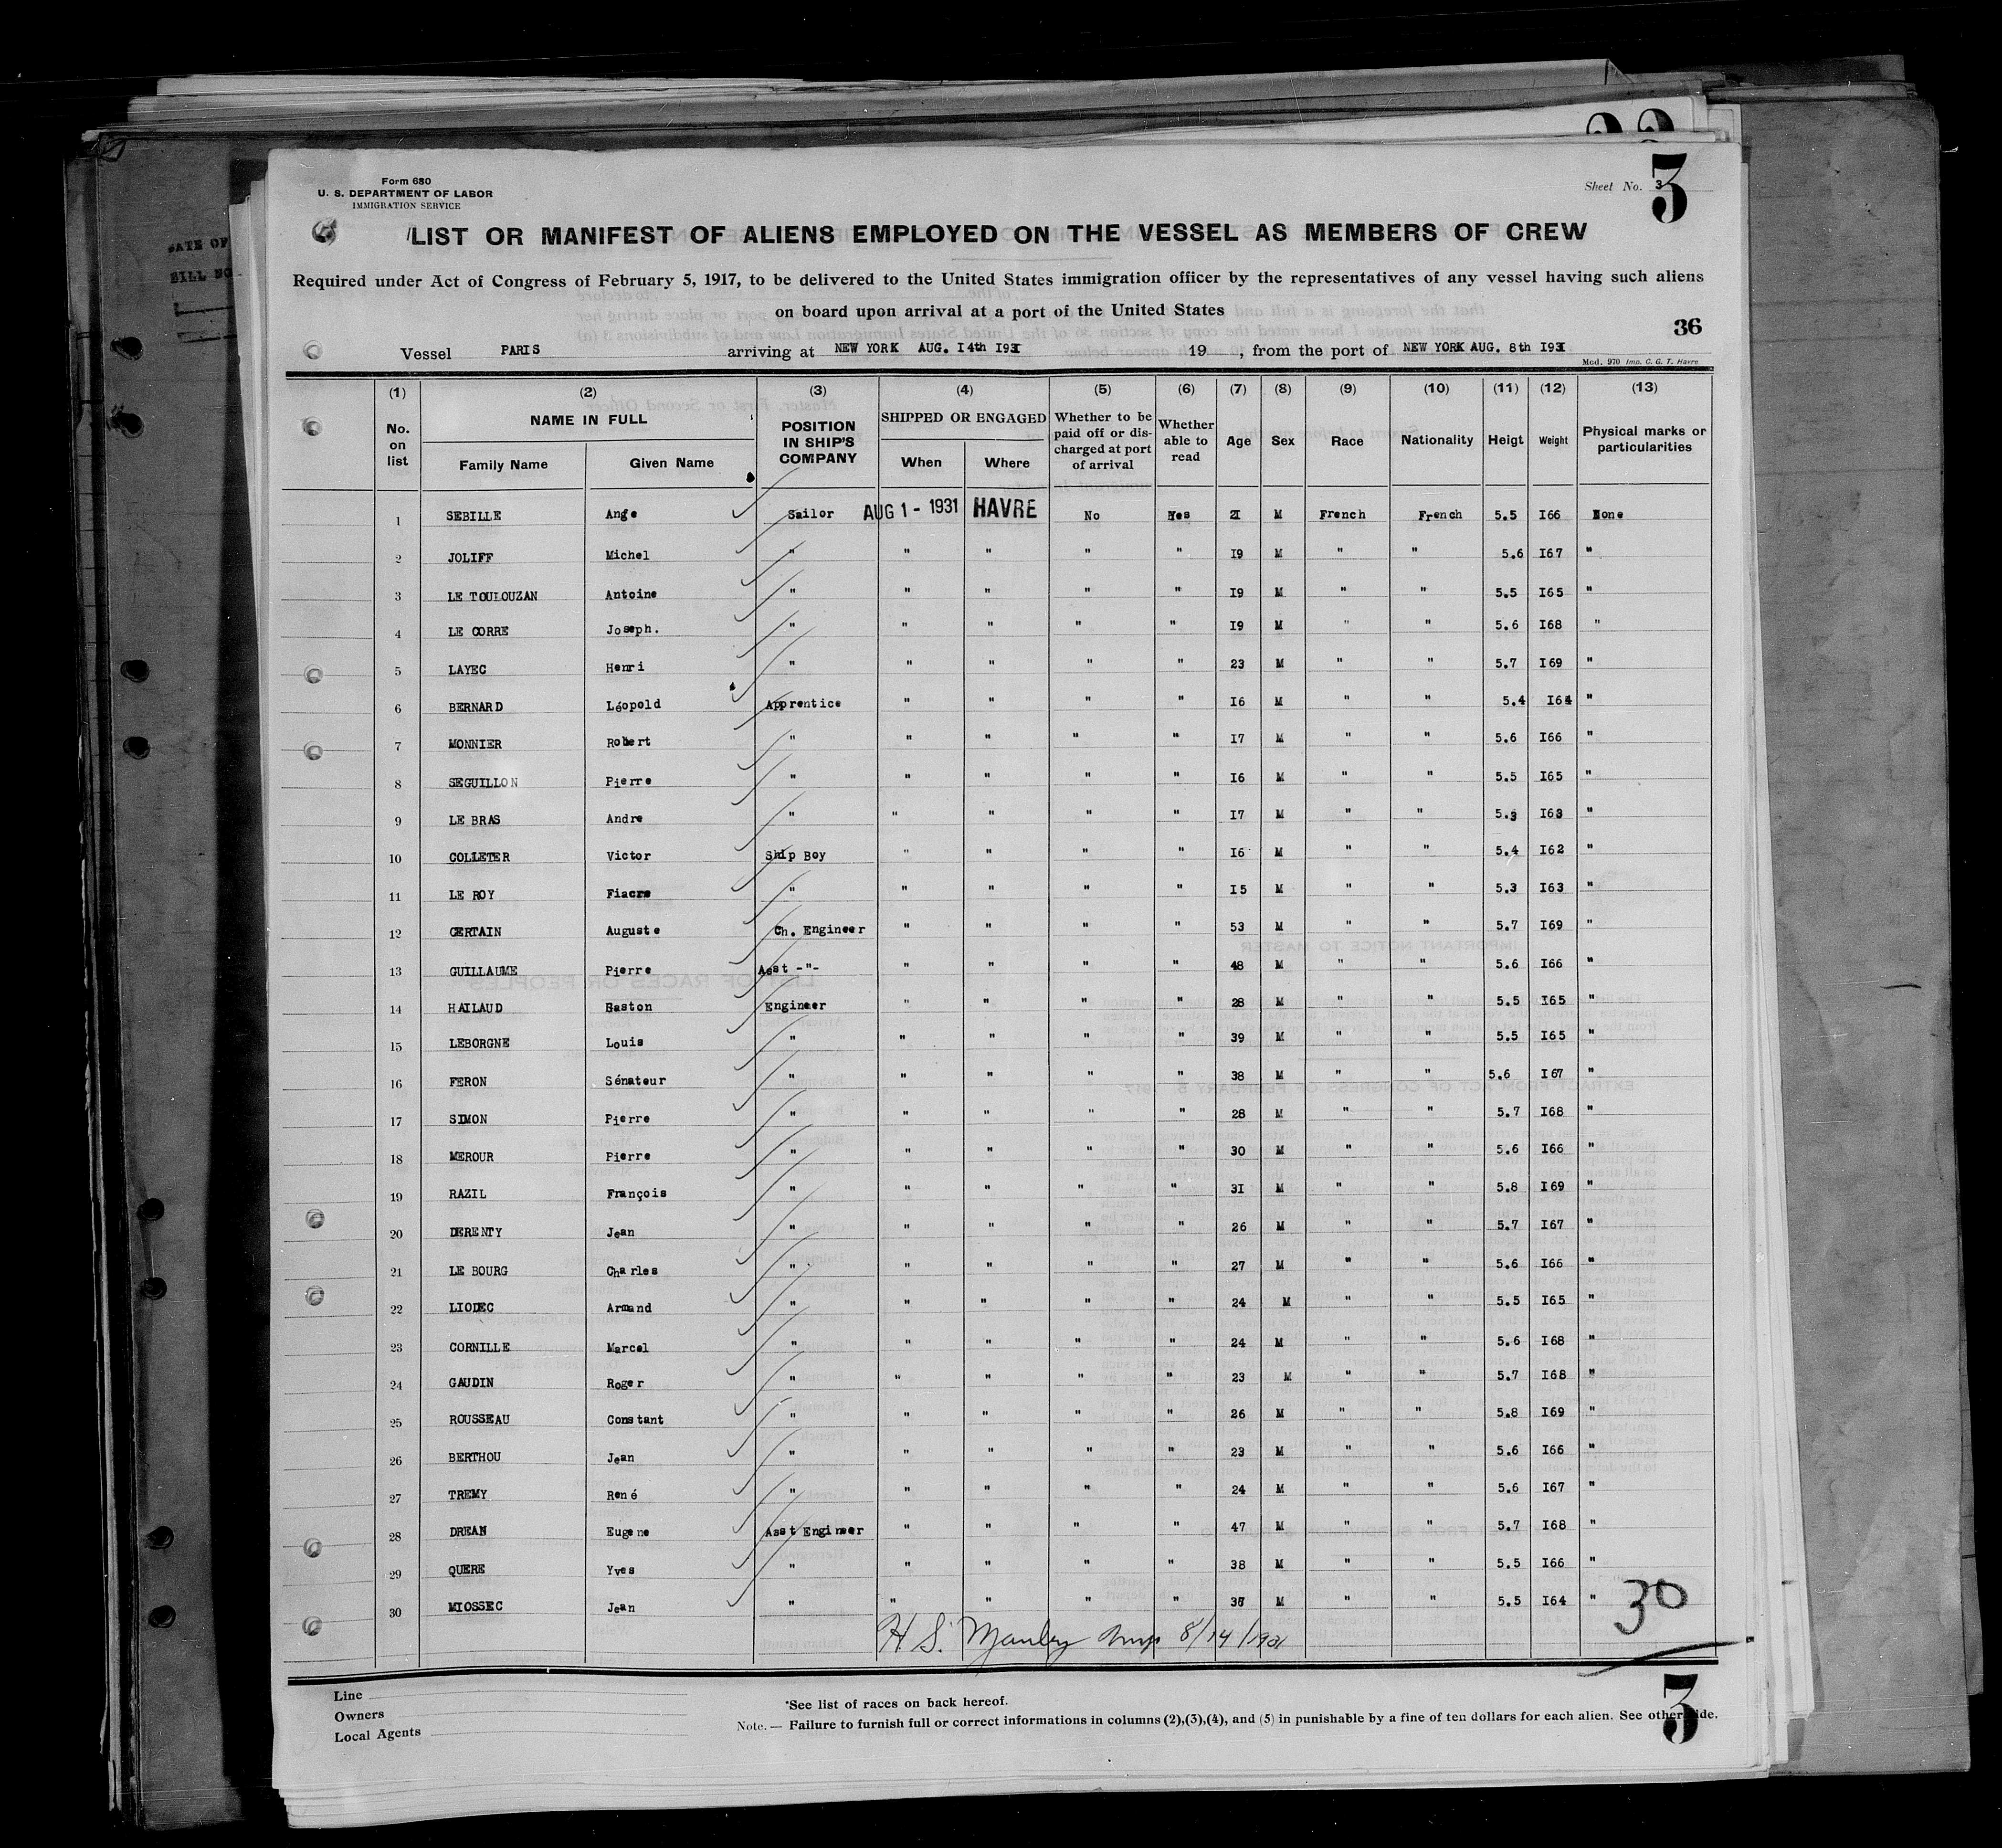 Form 680
U. S. DEPARTMENT OF LABOR
IMMIGRATION SERVICE
Sheet No. 3
3
LIST OR MANIFEST OF ALIENS EMPLOYED ON THE VESSEL AS MEMBERS OF CREW
Required under Act of Congress of February 5, 1917, to be delivered to the United States immigration officer by the representatives of any vessel having such aliens
on board upon arrival at a port of the United States
36
Vessel PARIS arriving at NEW YORK AUG. I4th I93I 19 , from the port of NEW YORK AUG. 8th I93I
Mod. 970 Imp. C. G. T. Havre
(1) (2) (3) (4) (5) (6) (7) (8) (9) (10) (11) (12) (13)
No. on list NAME IN FULL Family Name Given Name POSITION IN SHIP'S COMPANY SHIPPED OR ENGAGED When Where Whether to be paid off or discharged at port of arrival Whether able to read Age Sex Race Nationality Heigt Weight Physical marks or particularities
1 SEBILLE Ange Sailor AUG 1 - 1931 HAVRE No Yes 2I M French French 5.5 I66 None
2 JOLIFF Michel " " " " " I9 M " " 5.6 I67 "
3 LE TOULOUZAN Antoine " " " " " I9 M " " 5.5 I65 "
4 LE CORRE Joseph. " " " " " I9 M " " 5.6 I68 "
5 LAYEC Henri " " " " " 23 M " " 5.7 I69 "
6 BERNARD Léopold Apprentice " " " " I6 M " " 5.4 I64 "
7 MONNIER Robert " " " " " I7 M " " 5.6 I66 "
8 SEGUILLON Pierre " " " " " I6 M " " 5.5 I65 "
9 LE BRAS Andre " " " " " I7 M " " 5.3 I63 "
10 COLLETER Victor Ship Boy " " " " I6 M " " 5.4 I62 "
11 LE ROY Fiacre " " " " " I5 M " " 5.3 I63 "
12 CERTAIN Auguste Ch. Engineer " " " " 53 M " " 5.7 I69 "
13 GUILLAUME Pierre Asst -"- " " " " 48 M " " 5.6 I66 "
14 HAILAUD Gaston Engineer " " " " 28 M " " 5.5 I65 "
15 LEBORGNE Louis " " " " " 39 M " " 5.5 I65 "
16 FERON Sénateur " " " " " 38 M " " 5.6 I67 "
17 SIMON Pierre " " " " " 28 M " " 5.7 I68 "
18 MEROUR Pierre " " " " " 30 M " " 5.6 I66 "
19 RAZIL François " " " " " 3I M " " 5.8 I69 "
20 DERENTY Jean " " " " " 26 M " " 5.7 I67 "
21 LE BOURG Charles " " " " " 27 M " " 5.6 I66 "
22 LIODEC Armand " " " " " 24 M " " 5.5 I65 "
23 CORNILLE Marcel " " " " " 24 M " " 5.6 I68 "
24 GAUDIN Roger " " " " " 23 M " " 5.7 I68 "
25 ROUSSEAU Constant " " " " " 26 M " " 5.8 I69 "
26 BERTHOU Jean " " " " " 23 M " " 5.6 I66 "
27 TREMY René " " " " " 24 M " " 5.6 I67 "
28 DREAN Eugene Asst Engineer " " " " 47 M " " 5.7 I68 "
29 QUERE Yves " " " " " 38 M " " 5.5 I66 "
30 MIOSSEC Jean " " " " " M " " 5.5 I64 "
30
H. S. Manley 8/14/1931
Line
Owners
Local Agents
*See list of races on back hereof.
Note. — Failure to furnish full or correct informations in columns (2),(3),(4), and (5) in punishable by a fine of ten dollars for each alien. See other side.
3